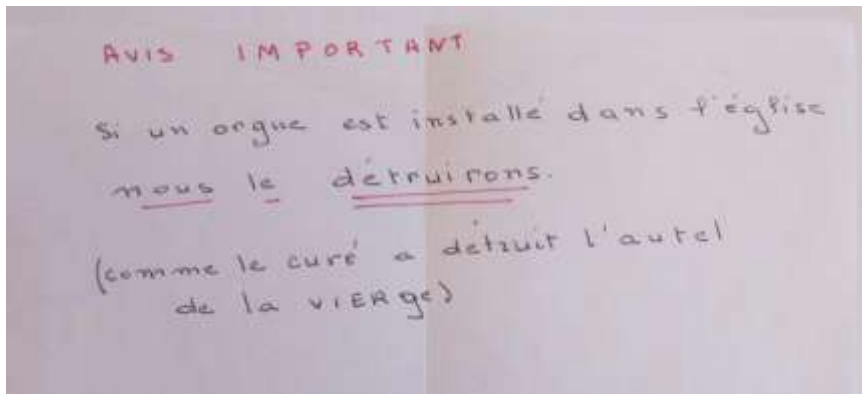 AVIS IMPORTANT
Si un orgue est installé dans l'église
nous le détruirons.
(comme le curé a détruit l'autel
de la VIERge)